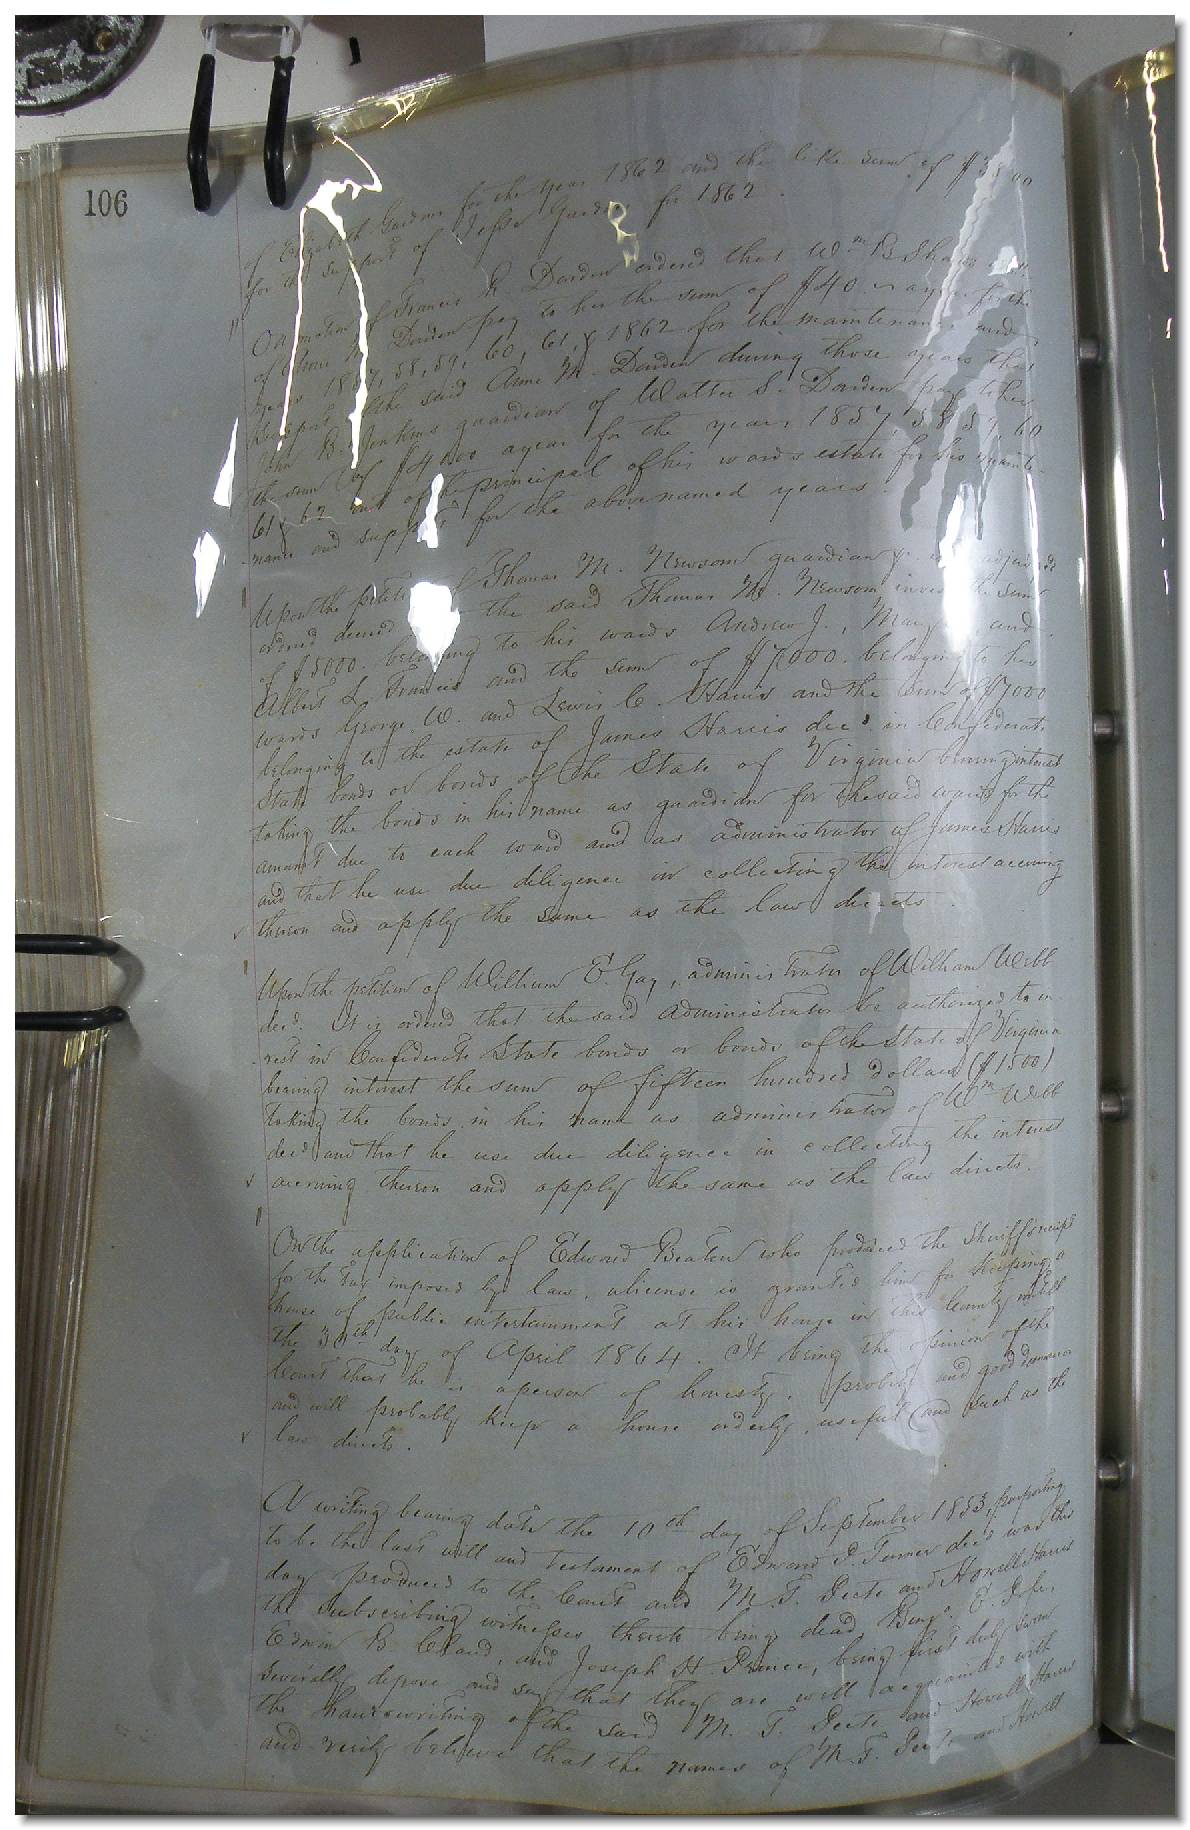 106
of Elizabeth Gardner for the year 1862 and the like sum of $38.00
for the support of Jesse Gardner for 1862.
On motion of Francis R. Darden ordered that Wm B Shands
of Anne M. Darden pay to her the sum of $40. a year for the
years 1857, 58, 59, 60, 61, & 1862 for the maintenance and
support of the said Anne M. Darden during those years that
John B. Jenkins guardian of Walter S. Darden pay to her
the sum of $40.00 a year for the years 1857, 58 59 60
61 & 62 out of the principal of his wards estate for his mainte-
nance and support for the above named years.
Upon the petition of Thomas M. Newsom guardian &c. adjudged
ordered decreed the said Thomas M. Newsom invest the sum
of $5000. belonging to his wards Andrew J., Mary, and
Albert L Francis and the sum of $7,000. belonging to his
wards George W. and Lewis C. Harris and the sum of $7000
belonging to the estate of James Harris decd. in Confederate
State bonds or bonds of the State of Virginia bearing interest
taking the bonds in his name as guardian for the said wards for the
amount due to each ward and as administrator of James Harris
and that he use due diligence in collecting the interest accruing
thereon and apply the same as the law directs.
Upon the petition of William E. Gay, administrator of William Webb
decd. It is ordered that the said Administrator be authorized to in-
vest in Confederate State bonds or bonds of the State of Virginia
bearing interest the sum of fifteen hundred dollars ($1500)
taking the bonds in his name as administrator of Wm Webb
decd and that he use due diligence in collecting the interest
accruing thereon and apply the same as the law directs.
On the application of Edward Beaton who produced the Sheriffs receipt
for the tax imposed by law, a license is granted him for keeping a
house of public entertainment at his house in this County untill
the 30th day of April 1864. It being the opinion of the
Court that he is a person of honesty, probity and good demeanor
and will probably keep a house orderly, useful and such as the
law directs.
A writing bearing date the 10th day of September 1853, purporting
to be the last will and testament of Edward P. Turner decd was this
day produced to the Court and M. T. Peete and Howell Harris
the subscribing witnesses thereto being dead, Benj. E.
Edwin B. Claud, and Joseph H. Prince, being first duly sworn
severally depose and say that they are well acquainted with
the handwriting of the said M. T. Peete and Howell Harris
and verily believe that the names of M. T. Peete and Howell